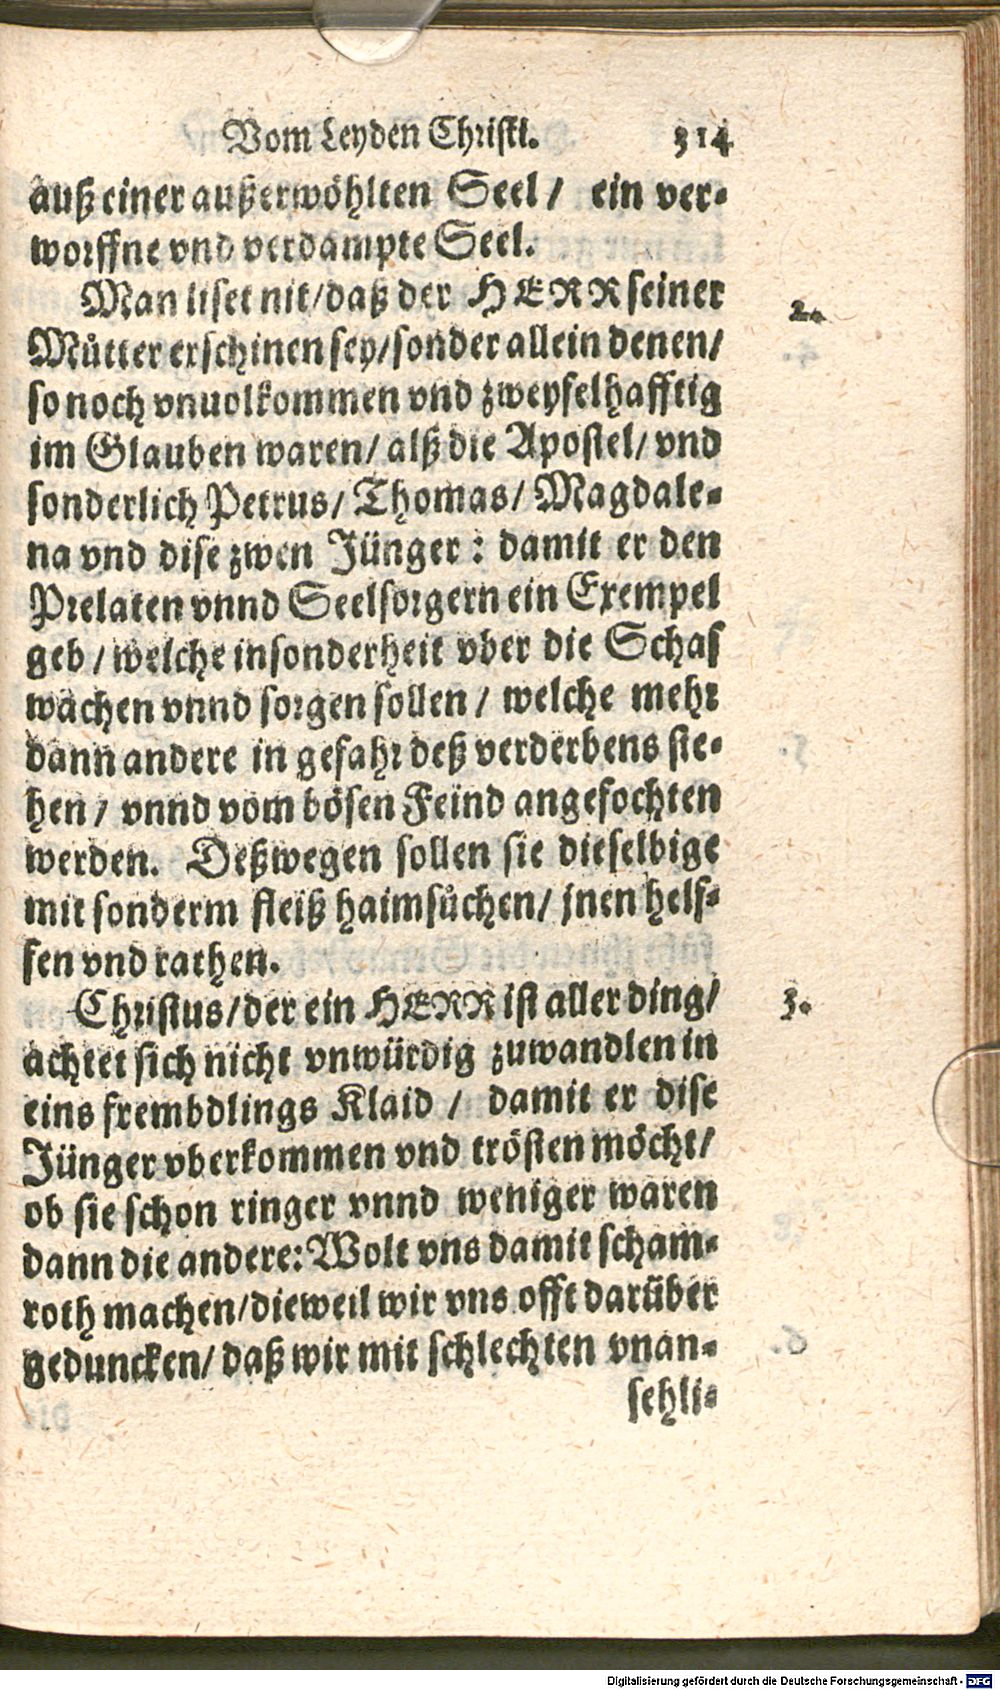 Vom Leyden Christi. 314
auß einer außerwöhlten Seel / ein ver-
worffne vnd verdampte Seel.
Man liset nit/daß der HERR seiner 2.
Můtter erschinen sey/sonder allein denen/
so noch vnuolkommen vnd zweyfelhafftig
im Glauben waren/ alß die Apostel/ vnd
sonderlich Petrus/ Thomas/ Magdale-
na vnd dise zwen Jünger: damit er den
Prelaten vnnd Seelsorgern ein Exempel
geb / welche insonderheit vber die Schaf
wachen vnnd sorgen sollen / welche mehr
dann andere in gefahr deß verderbens ste-
hen / vnnd vom bösen Feind angefochten
werden. Deßwegen sollen sie dieselbige
mit sonderm fleiß haimsůchen/ jnen helf-
fen vnd rathen.
Christus/der ein HERR ist aller ding/ 3.
achtet sich nicht vnwürdig zuwandlen in
eins frembdlings Klaid / damit er dise
Jünger vberkommen vnd trösten möcht/
ob sie schon ringer vnnd weniger waren
dann die andere: Wolt vns damit scham-
roth machen/dieweil wir vns offt darüber
geduncken/ daß wir mit schlechten vnan-
sehli-
Digitalisierung gefördert durch die Deutsche Forschungsgemeinschaft - DFG